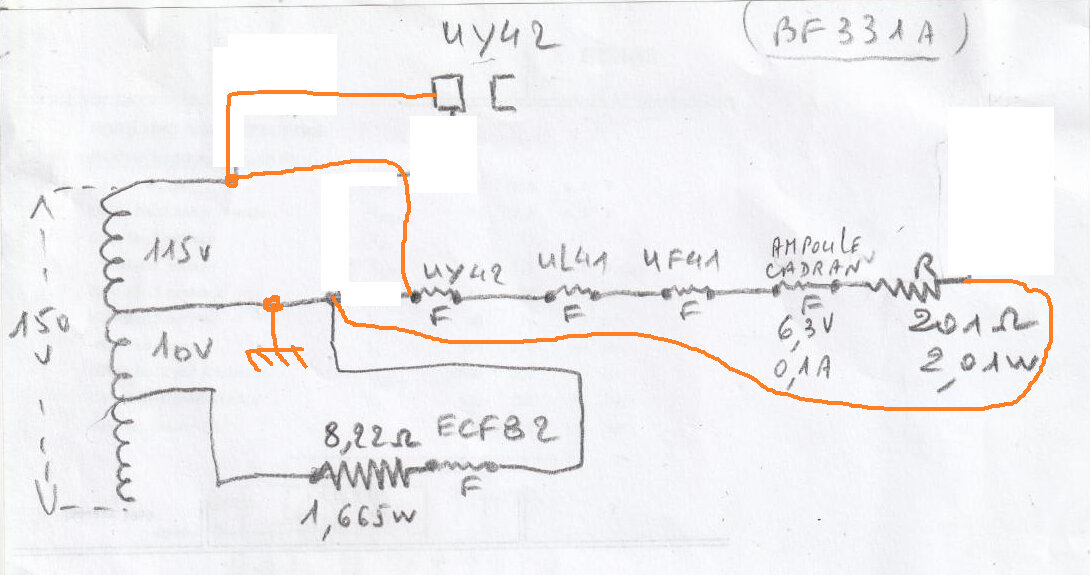 UY42
(BF331A)
115v
150
v
10v
UY42
F
UL41
F
UF41
F
AMPOULE
CADRAN
F
6,3V
0,1A
R
201Ω
2,01W
8,22Ω
1,665W
ECF82
F